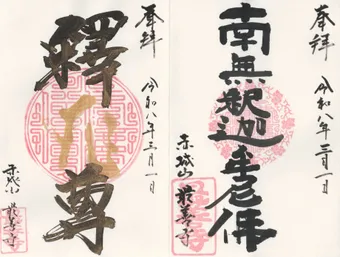 奉拝
令和八年三月一日
南無釈迦牟尼佛
赤城山
最善寺
奉拝
令和八年三月一日
釋尊
赤城山
最善寺